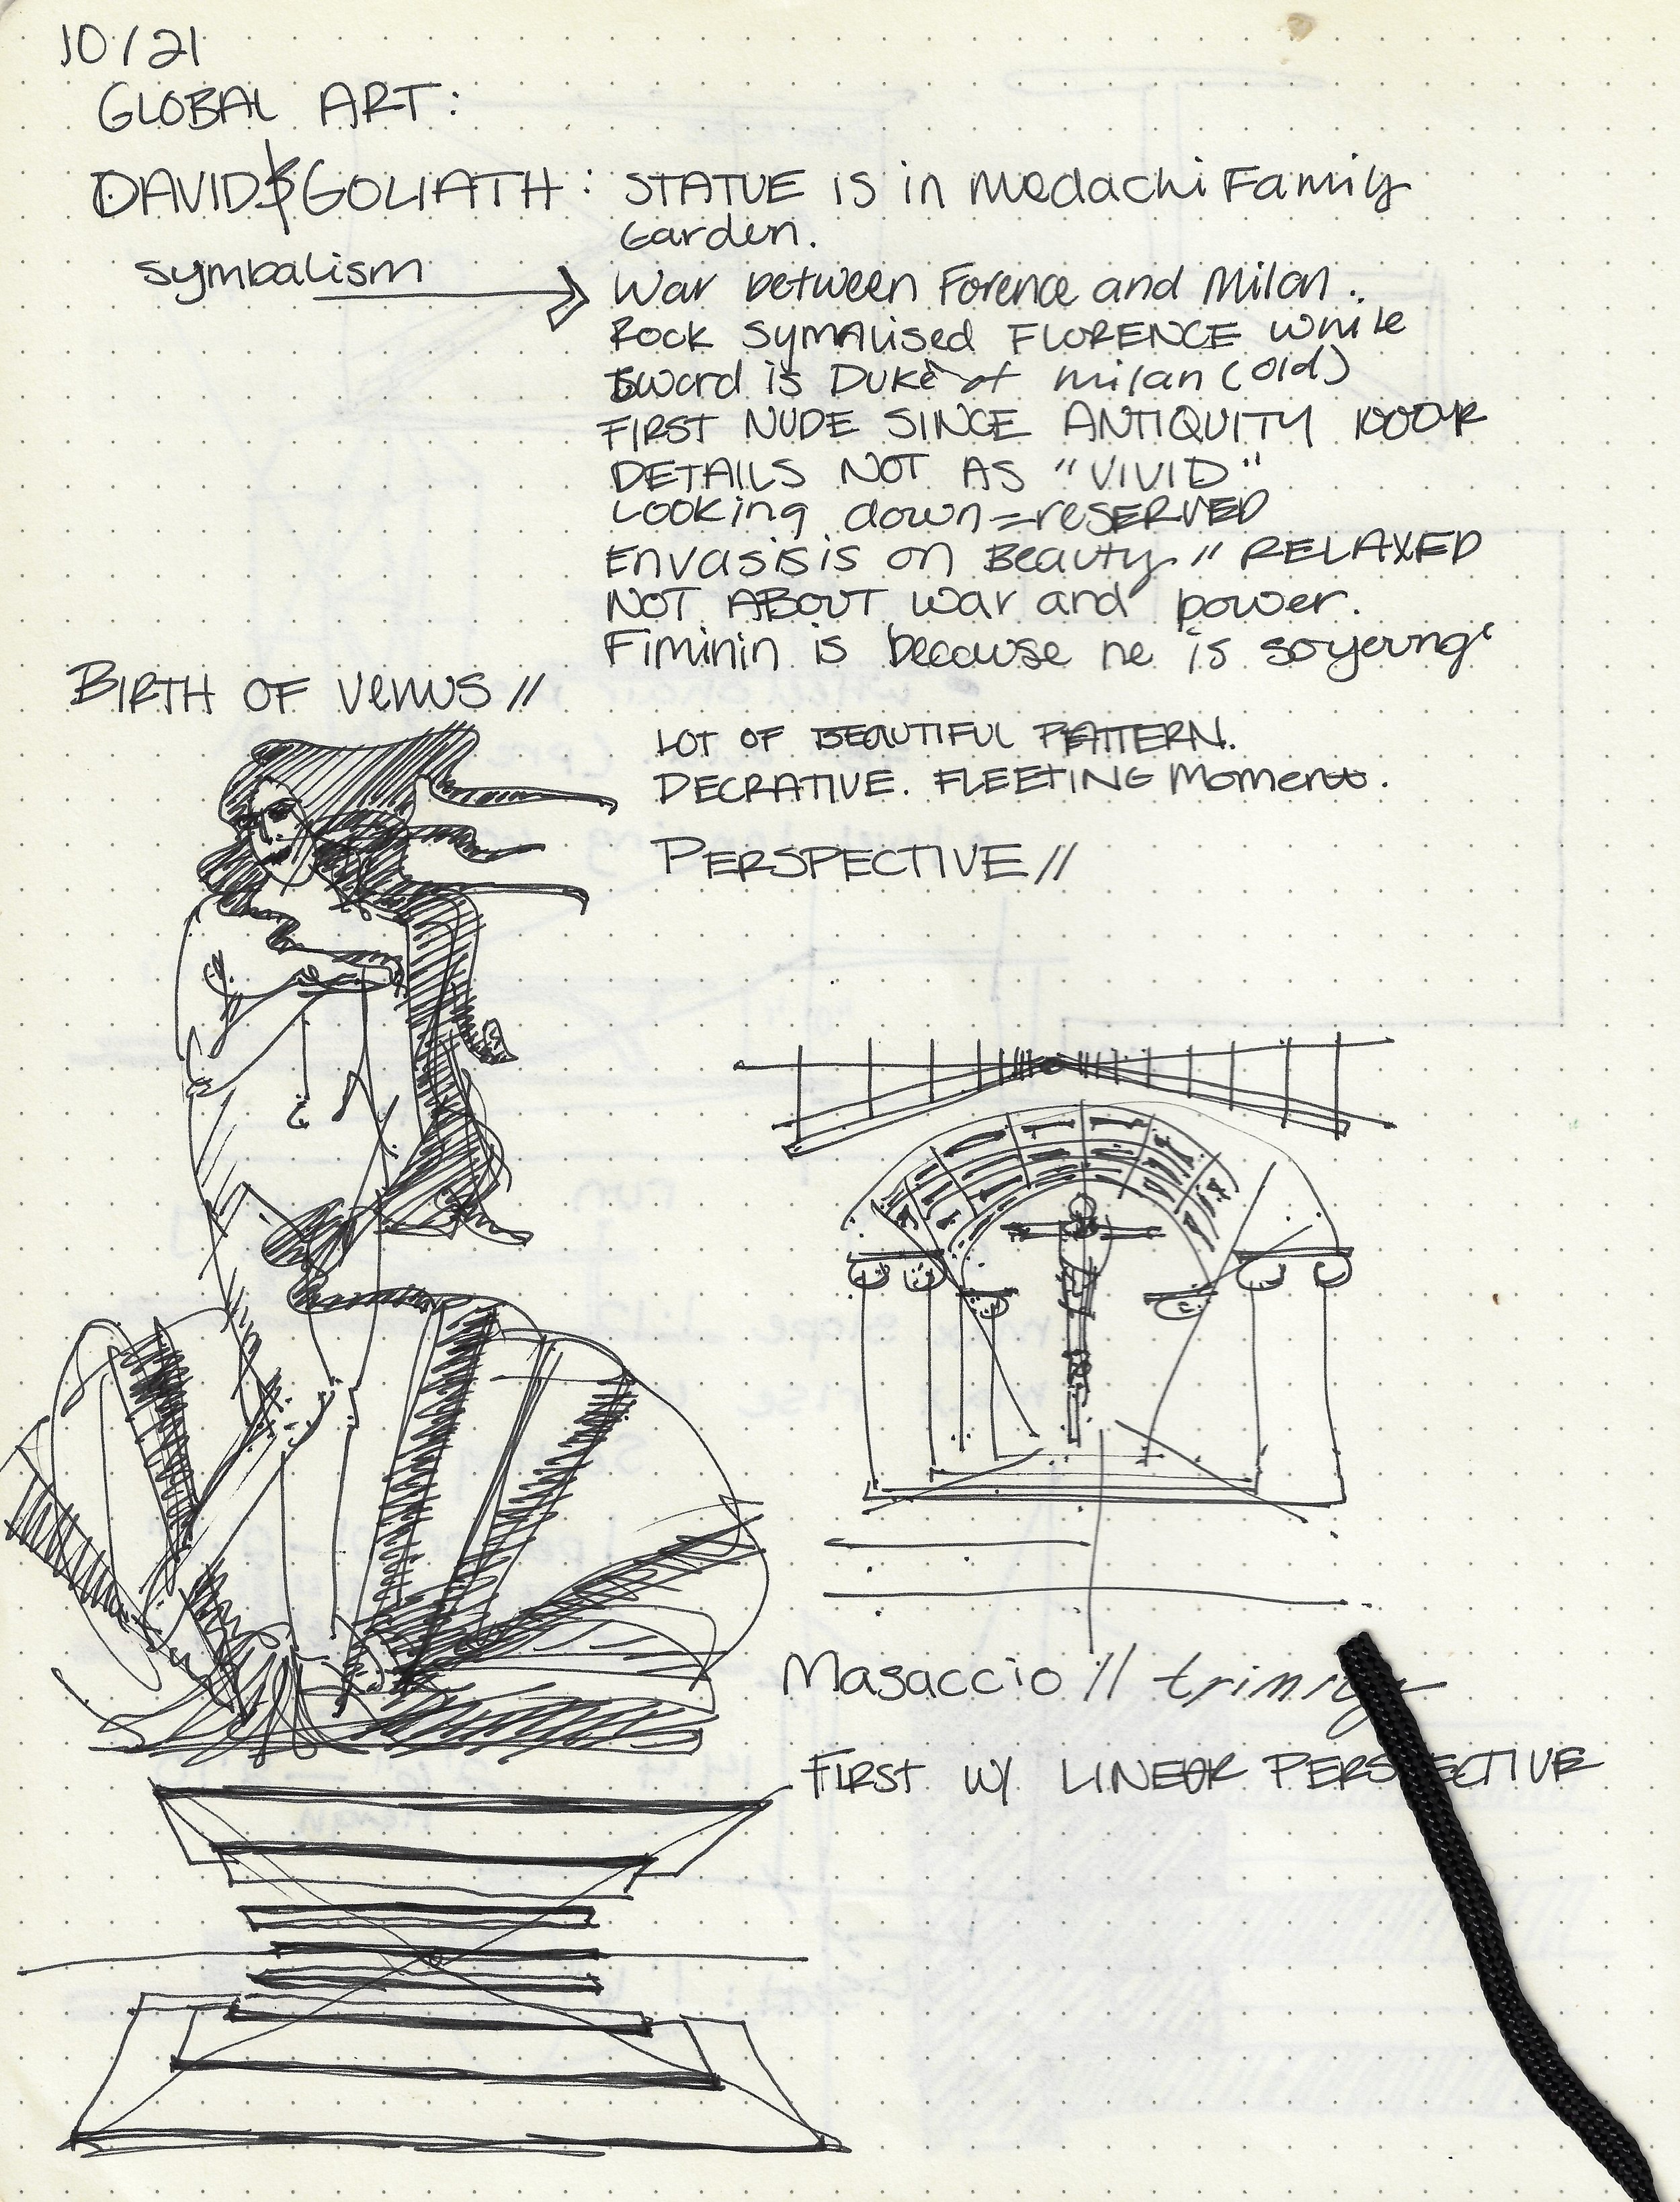 10/21
GLOBAL ART:
DAVID & GOLIATH: STATUE is in Medachi Family
Garden.
symbalism
War between Forence and Milan.
Rock Symalised FLORENCE while
Sword is Duke of milan (old)
FIRST NUDE SINCE ANTIQUITY 1000YR
DETAILS NOT AS "VIVID"
Looking down = reSERVED
Envasis is on Beauty // RELAXED
NOT ABOUT war and power.
Fiminin is because he is so young
BIRTH OF VENUS //
LOT OF BEAUTIFUL PATTERN.
DECRATIVE. FLEETING Moment.
PERSPECTIVE //
Masaccio // trinity
FIRST W/ LINEAR PERSPECTIVE